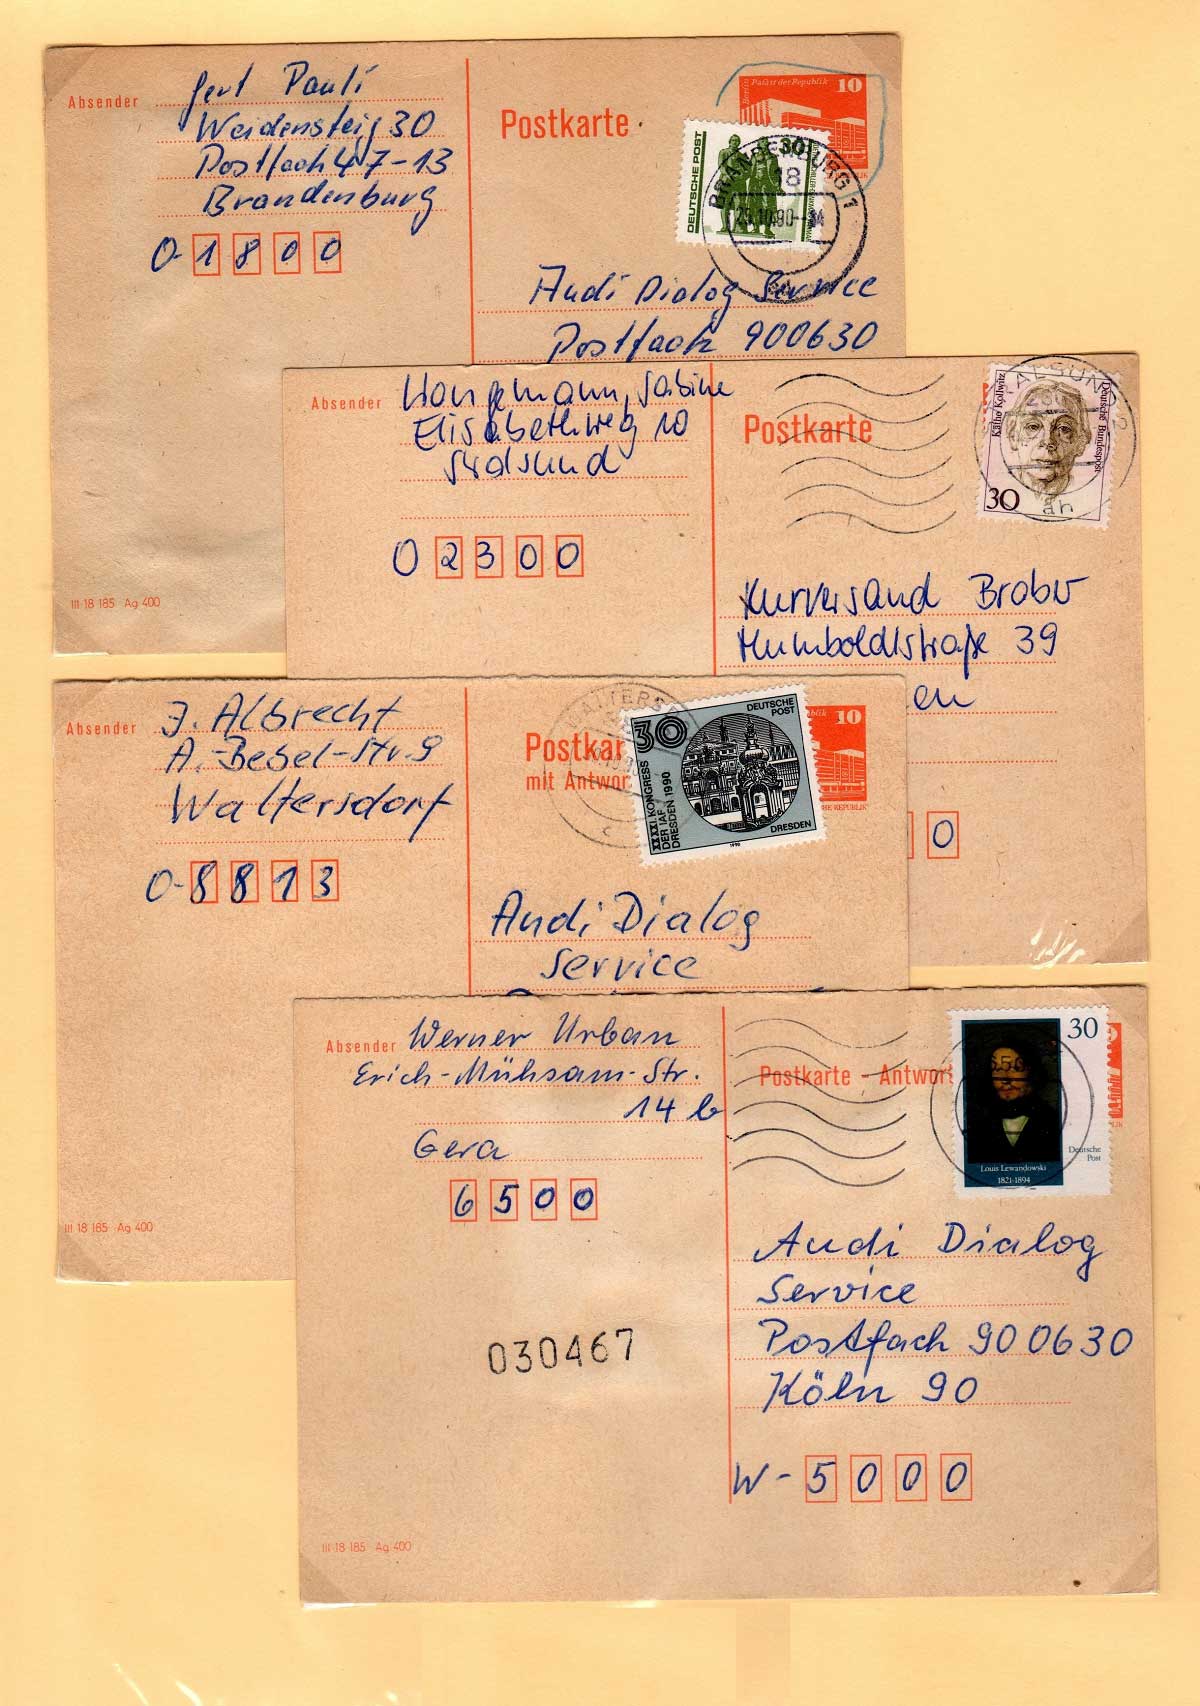 Absender
Gert Pauli
Weidensteig 30
Postfach 47-13
Brandenburg
O-1800
Postkarte
Berlin Palast der Republik 10
DEUTSCHE POST
30
BRANDENBURG 1
18
25.10.90
Audi Dialog Service
Postfach 900630
III 18 185 Ag 400
Absender
Sabine
Elisabethweg 10
Stralsund
O 2300
Postkarte
Käthe Kollwitz
Deutsche Bundespost
30
STRALSUND 2
Kurversand
Humboldtstraße 39
en
0
Absender
J. Albrecht
A.-Bebel-Str. 9
Waltersdorf
O-8813
Postkar
mit Antwor
30
DEUTSCHE POST
XXXXI KONGRESS
DER IAF
DRESDEN 1990
DRESDEN
1990
10
Audi Dialog
Service
III 18 185 Ag 400
Absender
Werner Urban
Erich-Mühsam-Str.
14 b
Gera
6500
Postkarte - Antwor
30
Deutsche Post
Louis Lewandowski
1821-1894
Audi Dialog
Service
Postfach 900630
Köln 90
W-5000
030467
III 18 185 Ag 400